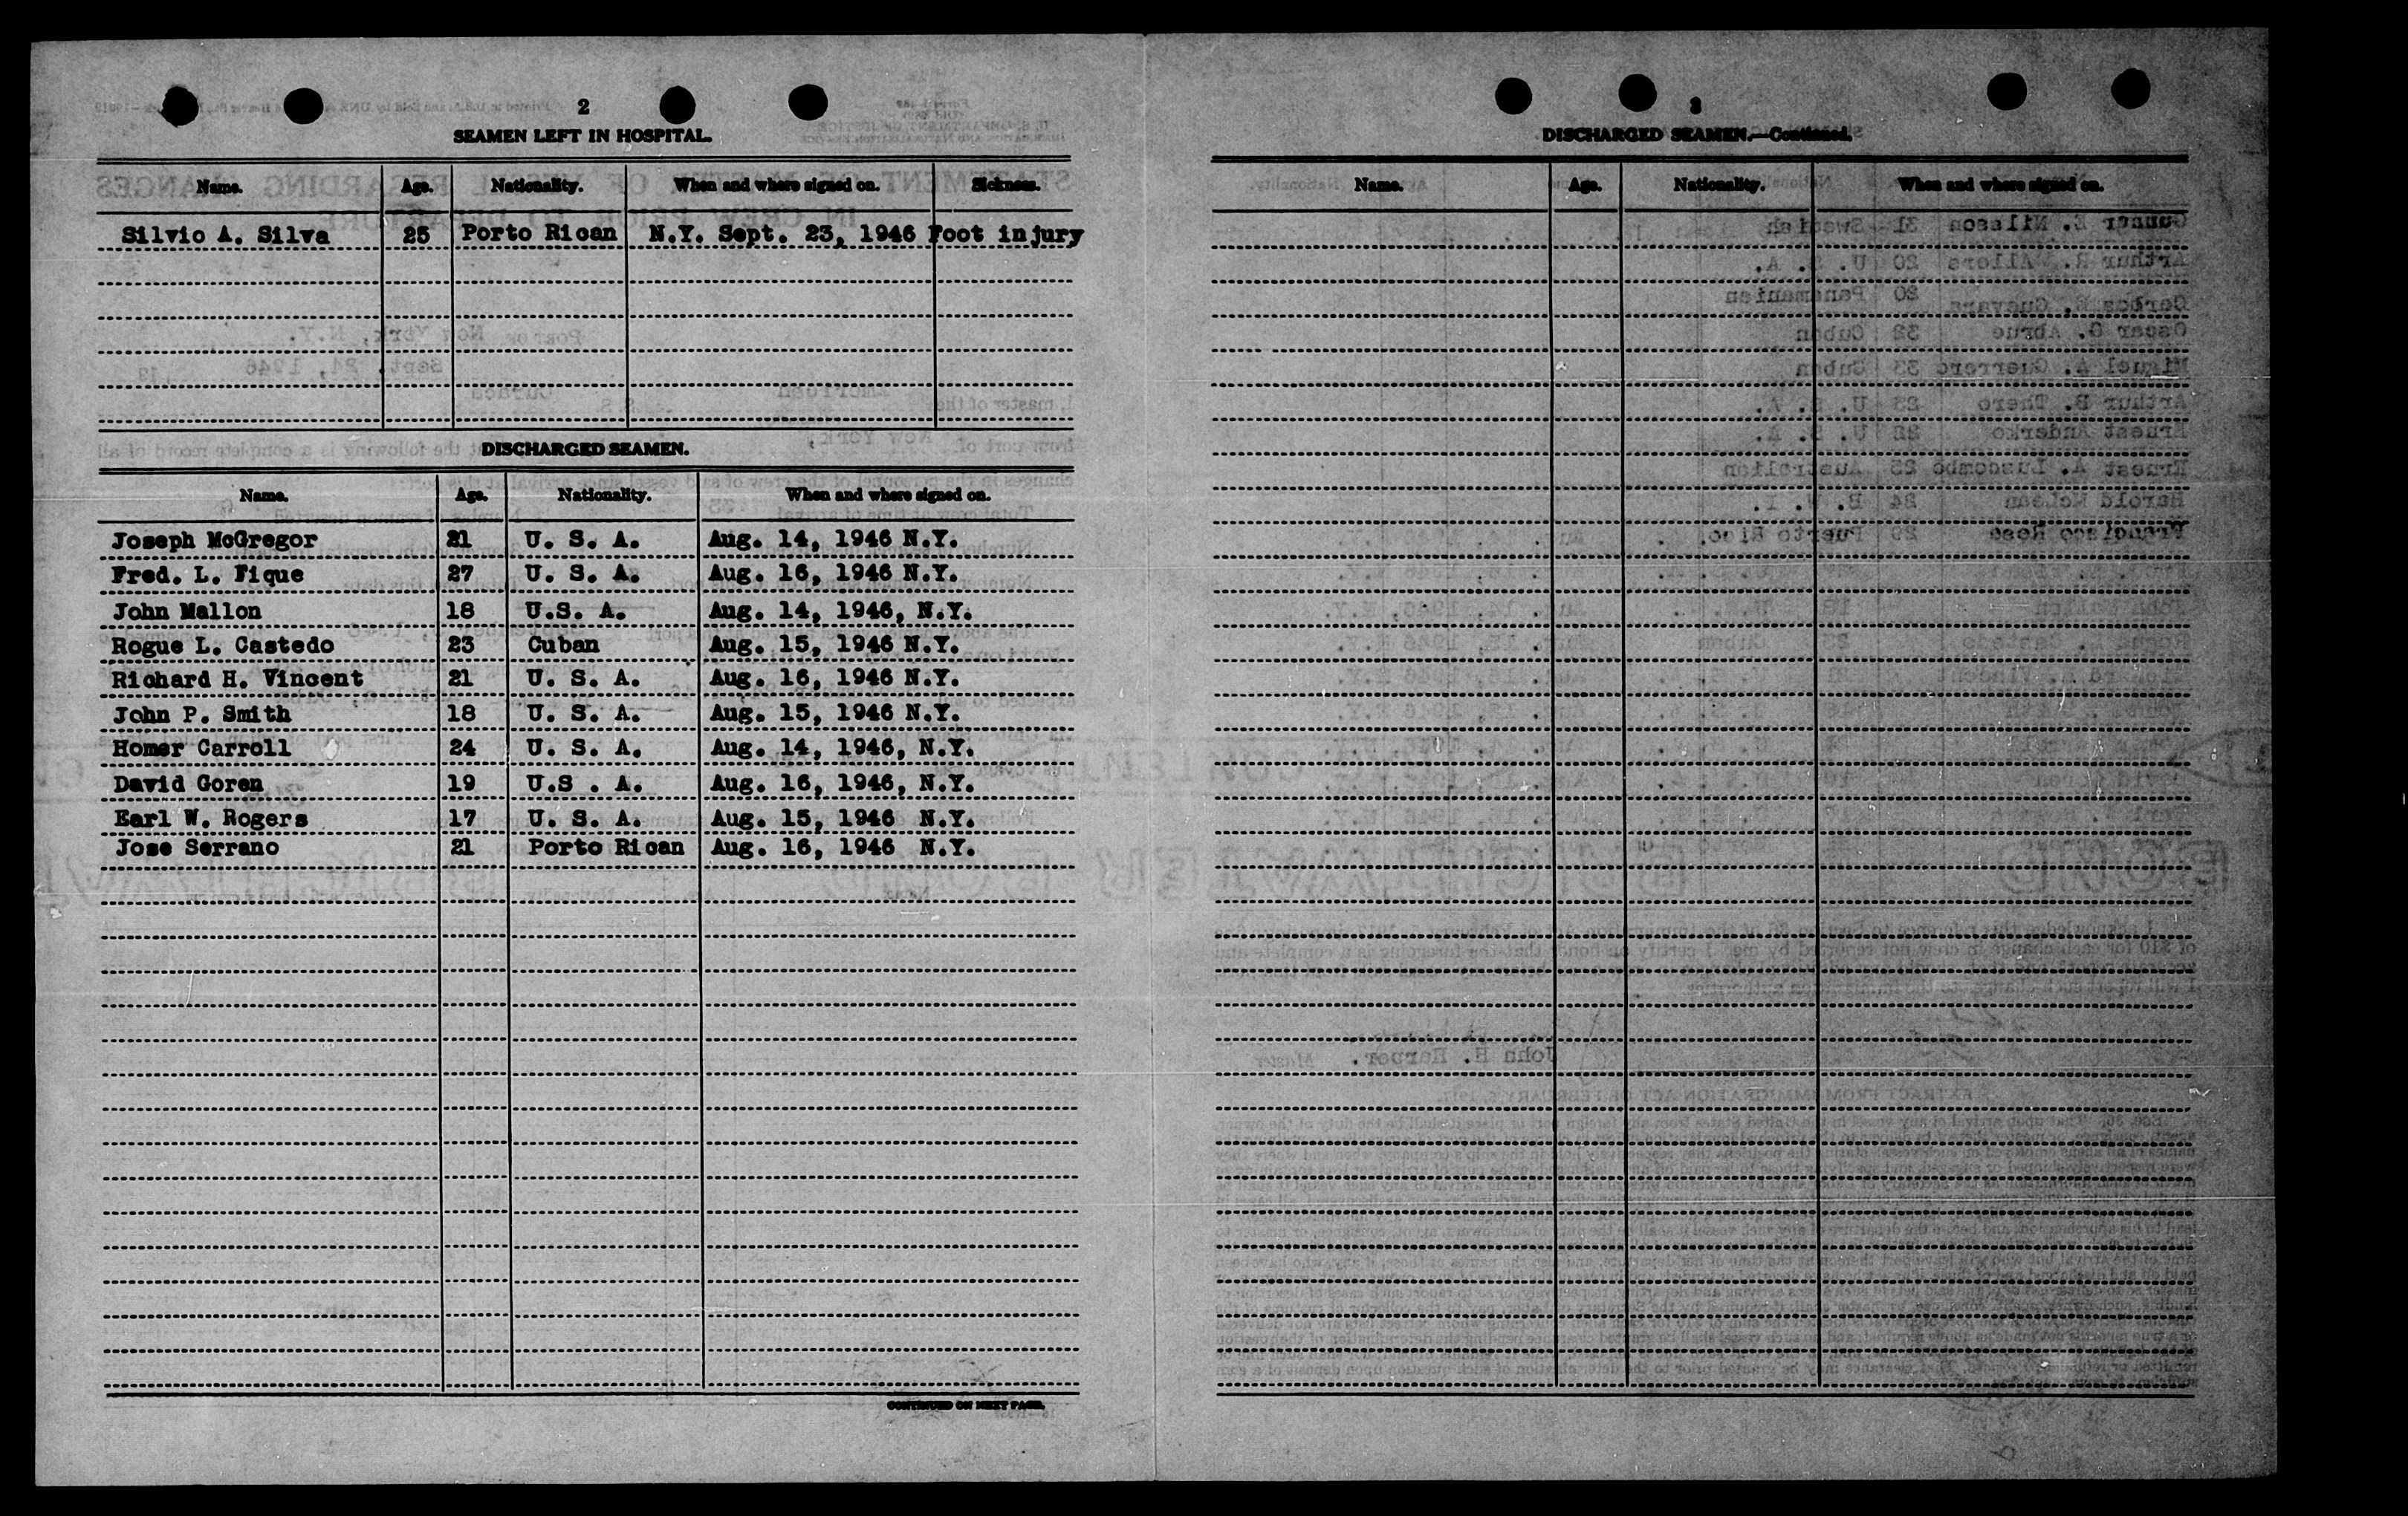 2
SEAMEN LEFT IN HOSPITAL.
Name. Age. Nationality. When and where signed on. Sickness.
Silvio A. Silva 25 Porto Rican N.Y. Sept. 23, 1946 Foot injury
DISCHARGED SEAMEN.
Name. Age. Nationality. When and where signed on.
Joseph McGregor 21 U. S. A. Aug. 14, 1946 N.Y.
Fred. L. Fique 27 U. S. A. Aug. 16, 1946 N.Y.
John Mallon 18 U.S. A. Aug. 14, 1946, N.Y.
Rogue L. Castedo 23 Cuban Aug. 15, 1946 N.Y.
Richard H. Vincent 21 U. S. A. Aug. 16, 1946 N.Y.
John P. Smith 18 U. S. A. Aug. 15, 1946 N.Y.
Homer Carroll 24 U. S. A. Aug. 14, 1946, N.Y.
David Goren 19 U.S . A. Aug. 16, 1946, N.Y.
Earl W. Rogers 17 U. S. A. Aug. 15, 1946 N.Y.
Jose Serrano 21 Porto Rican Aug. 16, 1946 N.Y.
CONTINUED ON NEXT PAGE.
3
DISCHARGED SEAMEN.—Continued.
Name. Age. Nationality. When and where signed on.